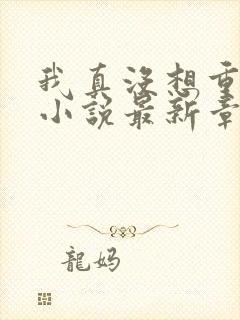 我真没想重
小说最新章
龍妈